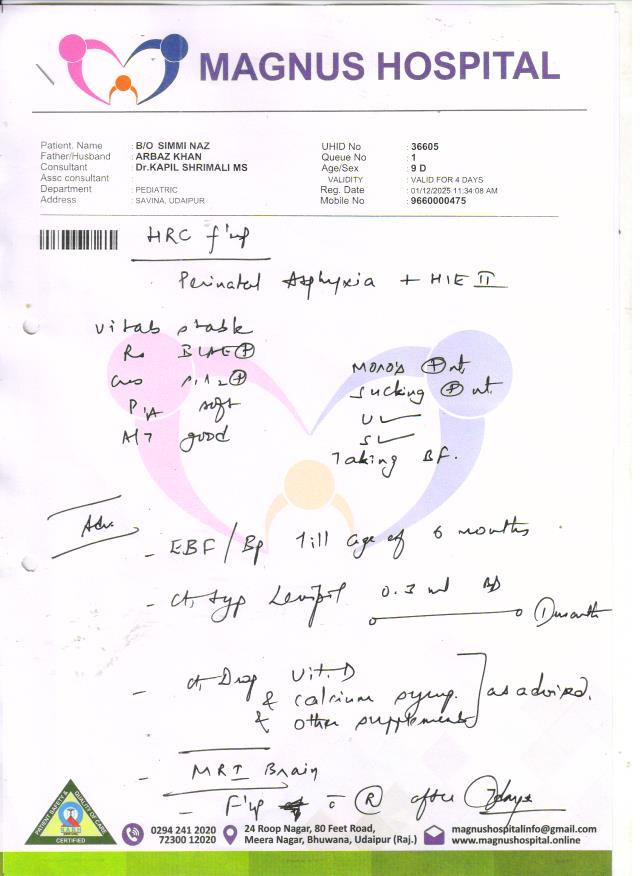 MAGNUS HOSPITAL
Patient. Name : B/O SIMMI NAZ
Father/Husband : ARBAZ KHAN
Consultant : Dr.KAPIL SHRIMALI MS
Assc consultant :
Department : PEDIATRIC
Address : SAVINA, UDAIPUR
UHID No : 36605
Queue No : 1
Age/Sex : 9 D
VALIDITY : VALID FOR 4 DAYS
Reg. Date : 01/12/2025 11:34:08 AM
Mobile No : 9660000475
HRC f'up
Perinatal Asphyxia + HIE II
vitals stable
Rs BLAE⊕
CVS S1S2⊕
P/A soft
A/T good
Moro's ⊕nt
sucking ⊕nt
U ✓
S ✓
Taking BF.
Adv.
- EBF/Bp till age of 6 months
- Ct. Syp Levipil 0.3 ml BD 1 month
- Ct. Drop Vit. D
& calcium syrup.
& other supplements
as advised.
- MRI Brain
- F'up c̄ R after 7 days
PATIENT SAFETY & QUALITY OF CARE
CERTIFIED
0294 241 2020
73300 12020
24 Roop Nagar, 80 Feet Road,
Meera Nagar, Bhuwana, Udaipur (Raj.)
magnushospitalinfo@gmail.com
www.magnushospital.online